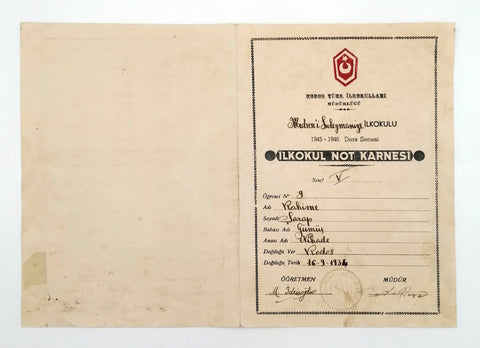 RODOS TÜRK İLKOKULLARI
MÜDÜRLÜĞÜ
Medrese'i Süleymaniye İLKOKULU
1945 - 1946 Ders Senesi
İLKOKUL NOT KARNESİ
Sınıf V
Öğrenci Nº 9
Adı Rahime
Soyadı Sarap
Babası Adı Gümüş
Anası Adı Nihade
Doğduğu Yer Rodos
Doğduğu Tarih 16-9-1934
ÖĞRETMEN MÜDÜR
M.